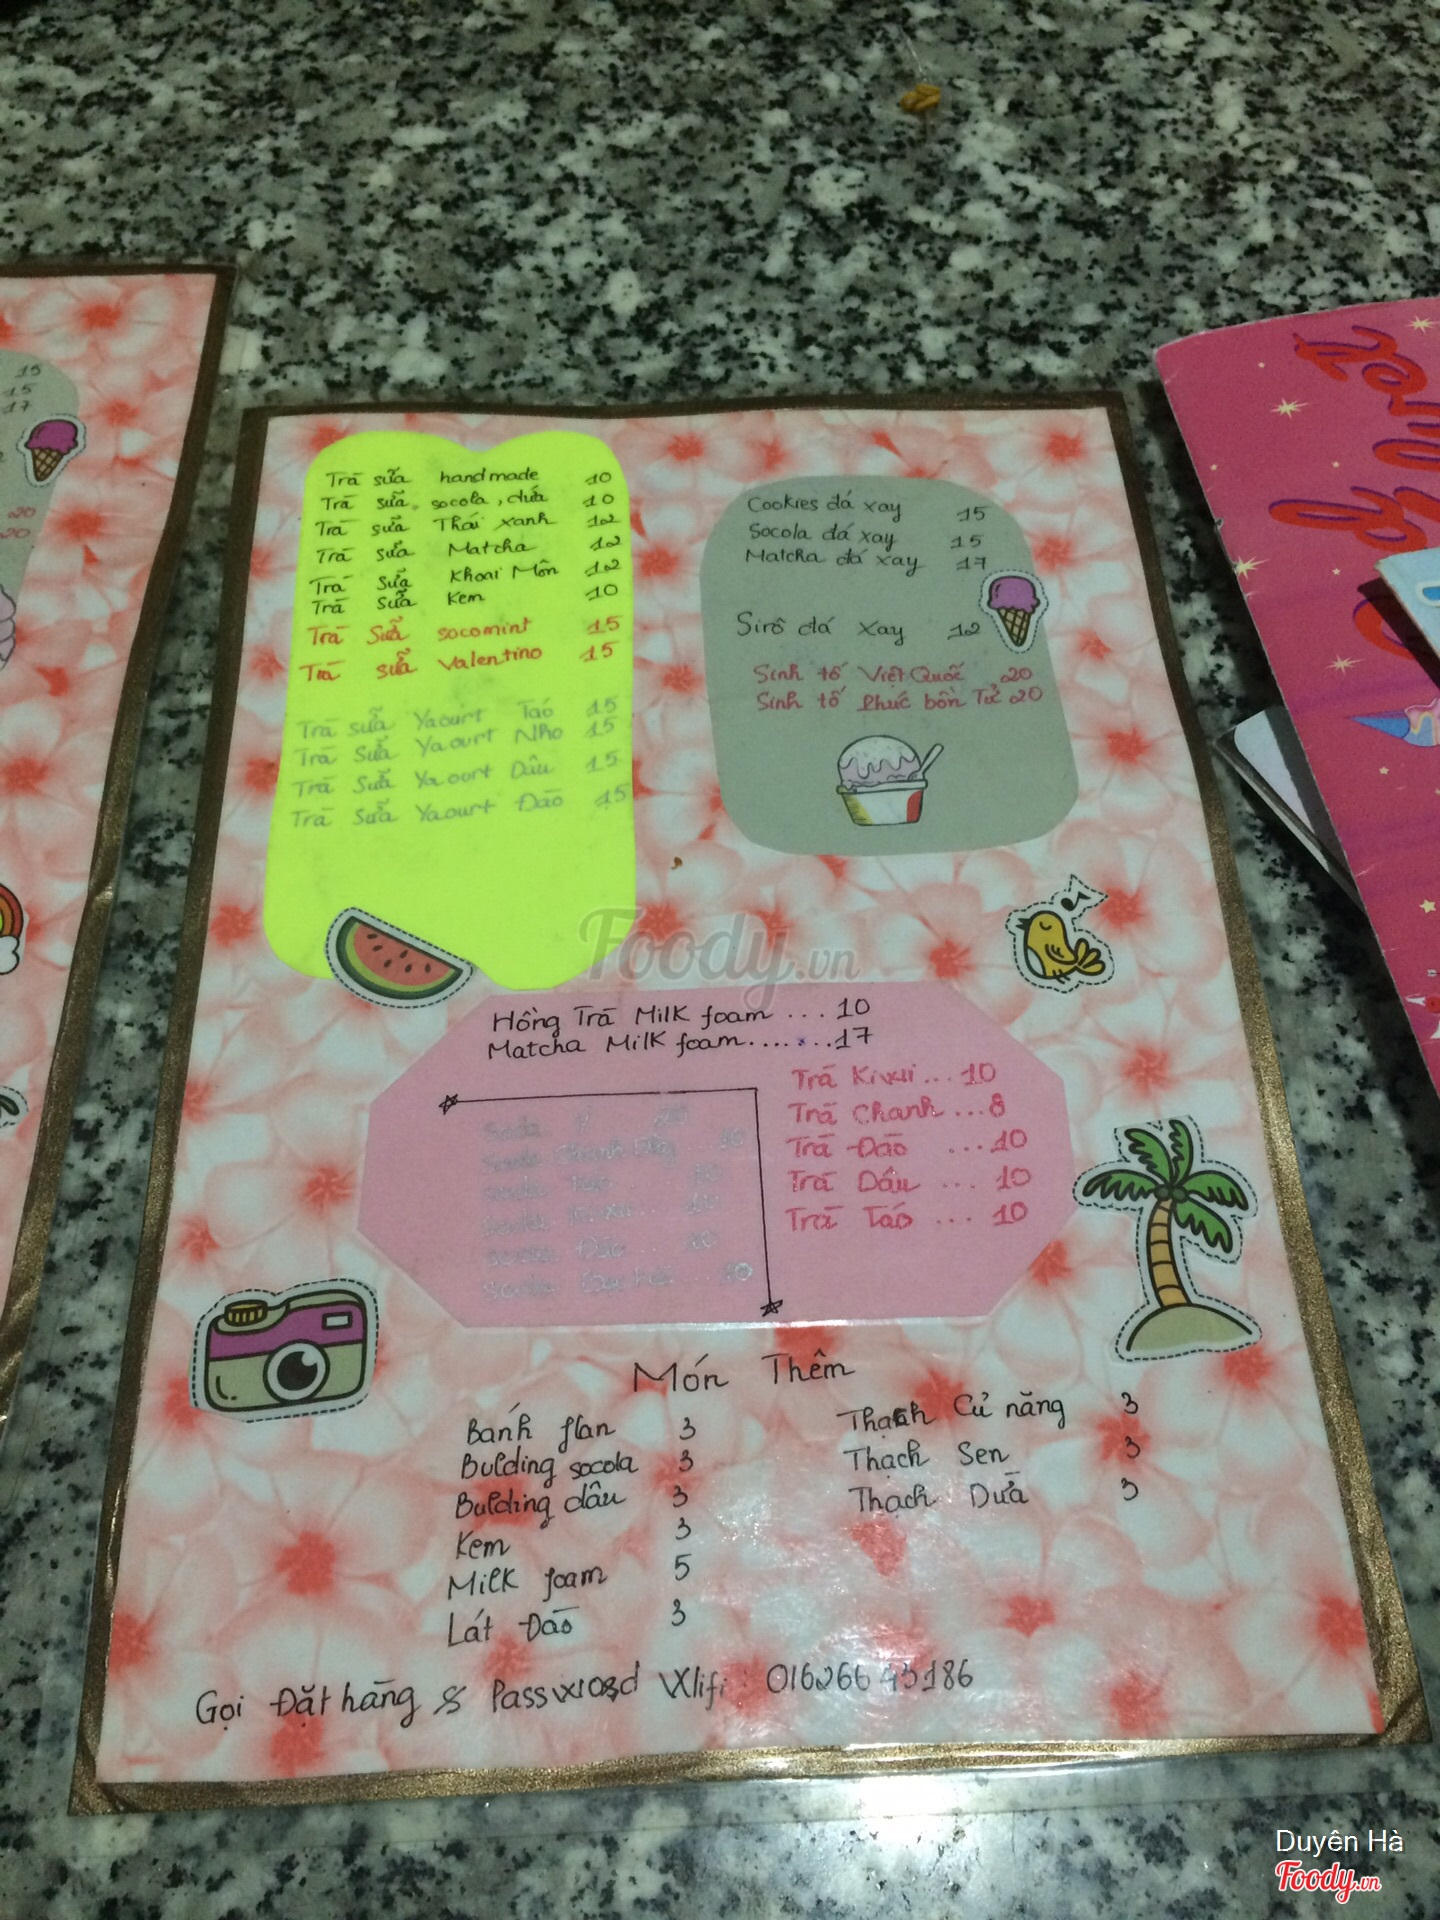 Trà sữa handmade 10
Trà sữa socola, dứa 10
Trà sữa Thái xanh 12
Trà sữa Matcha 12
Trà sữa Khoai Môn 12
Trà sữa Kem 10
Trà sữa socomint 15
Trà sữa Valentino 15
Trà sữa Yaourt Táo 15
Trà sữa Yaourt Nho 15
Trà sữa Yaourt Dâu 15
Trà sữa Yaourt Đào 15
Cookies đá xay 15
Socola đá xay 15
Matcha đá xay 17
Sirô đá xay 12
Sinh tố Việt Quốc 20
Sinh tố Phúc bồn Tử 20
Foody.vn
Hồng Trà Milk foam ... 10
Matcha Milk foam....... 17
Trà Kiwi ... 10
Trà Chanh ... 8
Trà Đào ... 10
Trà Dâu ... 10
Trà Táo ... 10
Soda
Soda
Soda
Soda
Soda Đào
Soda
Món Thêm
Bánh flan 3
Bulding socola 3
Bulding dâu 3
Kem 3
Milk foam 5
Lát Đào 3
Thạch Củ năng 3
Thạch Sen 3
Thạch Dừa 3
Gọi Đặt hàng & Password Wifi: 01626645186
15
15
17
20
20
Duyên Hà
Foody.vn